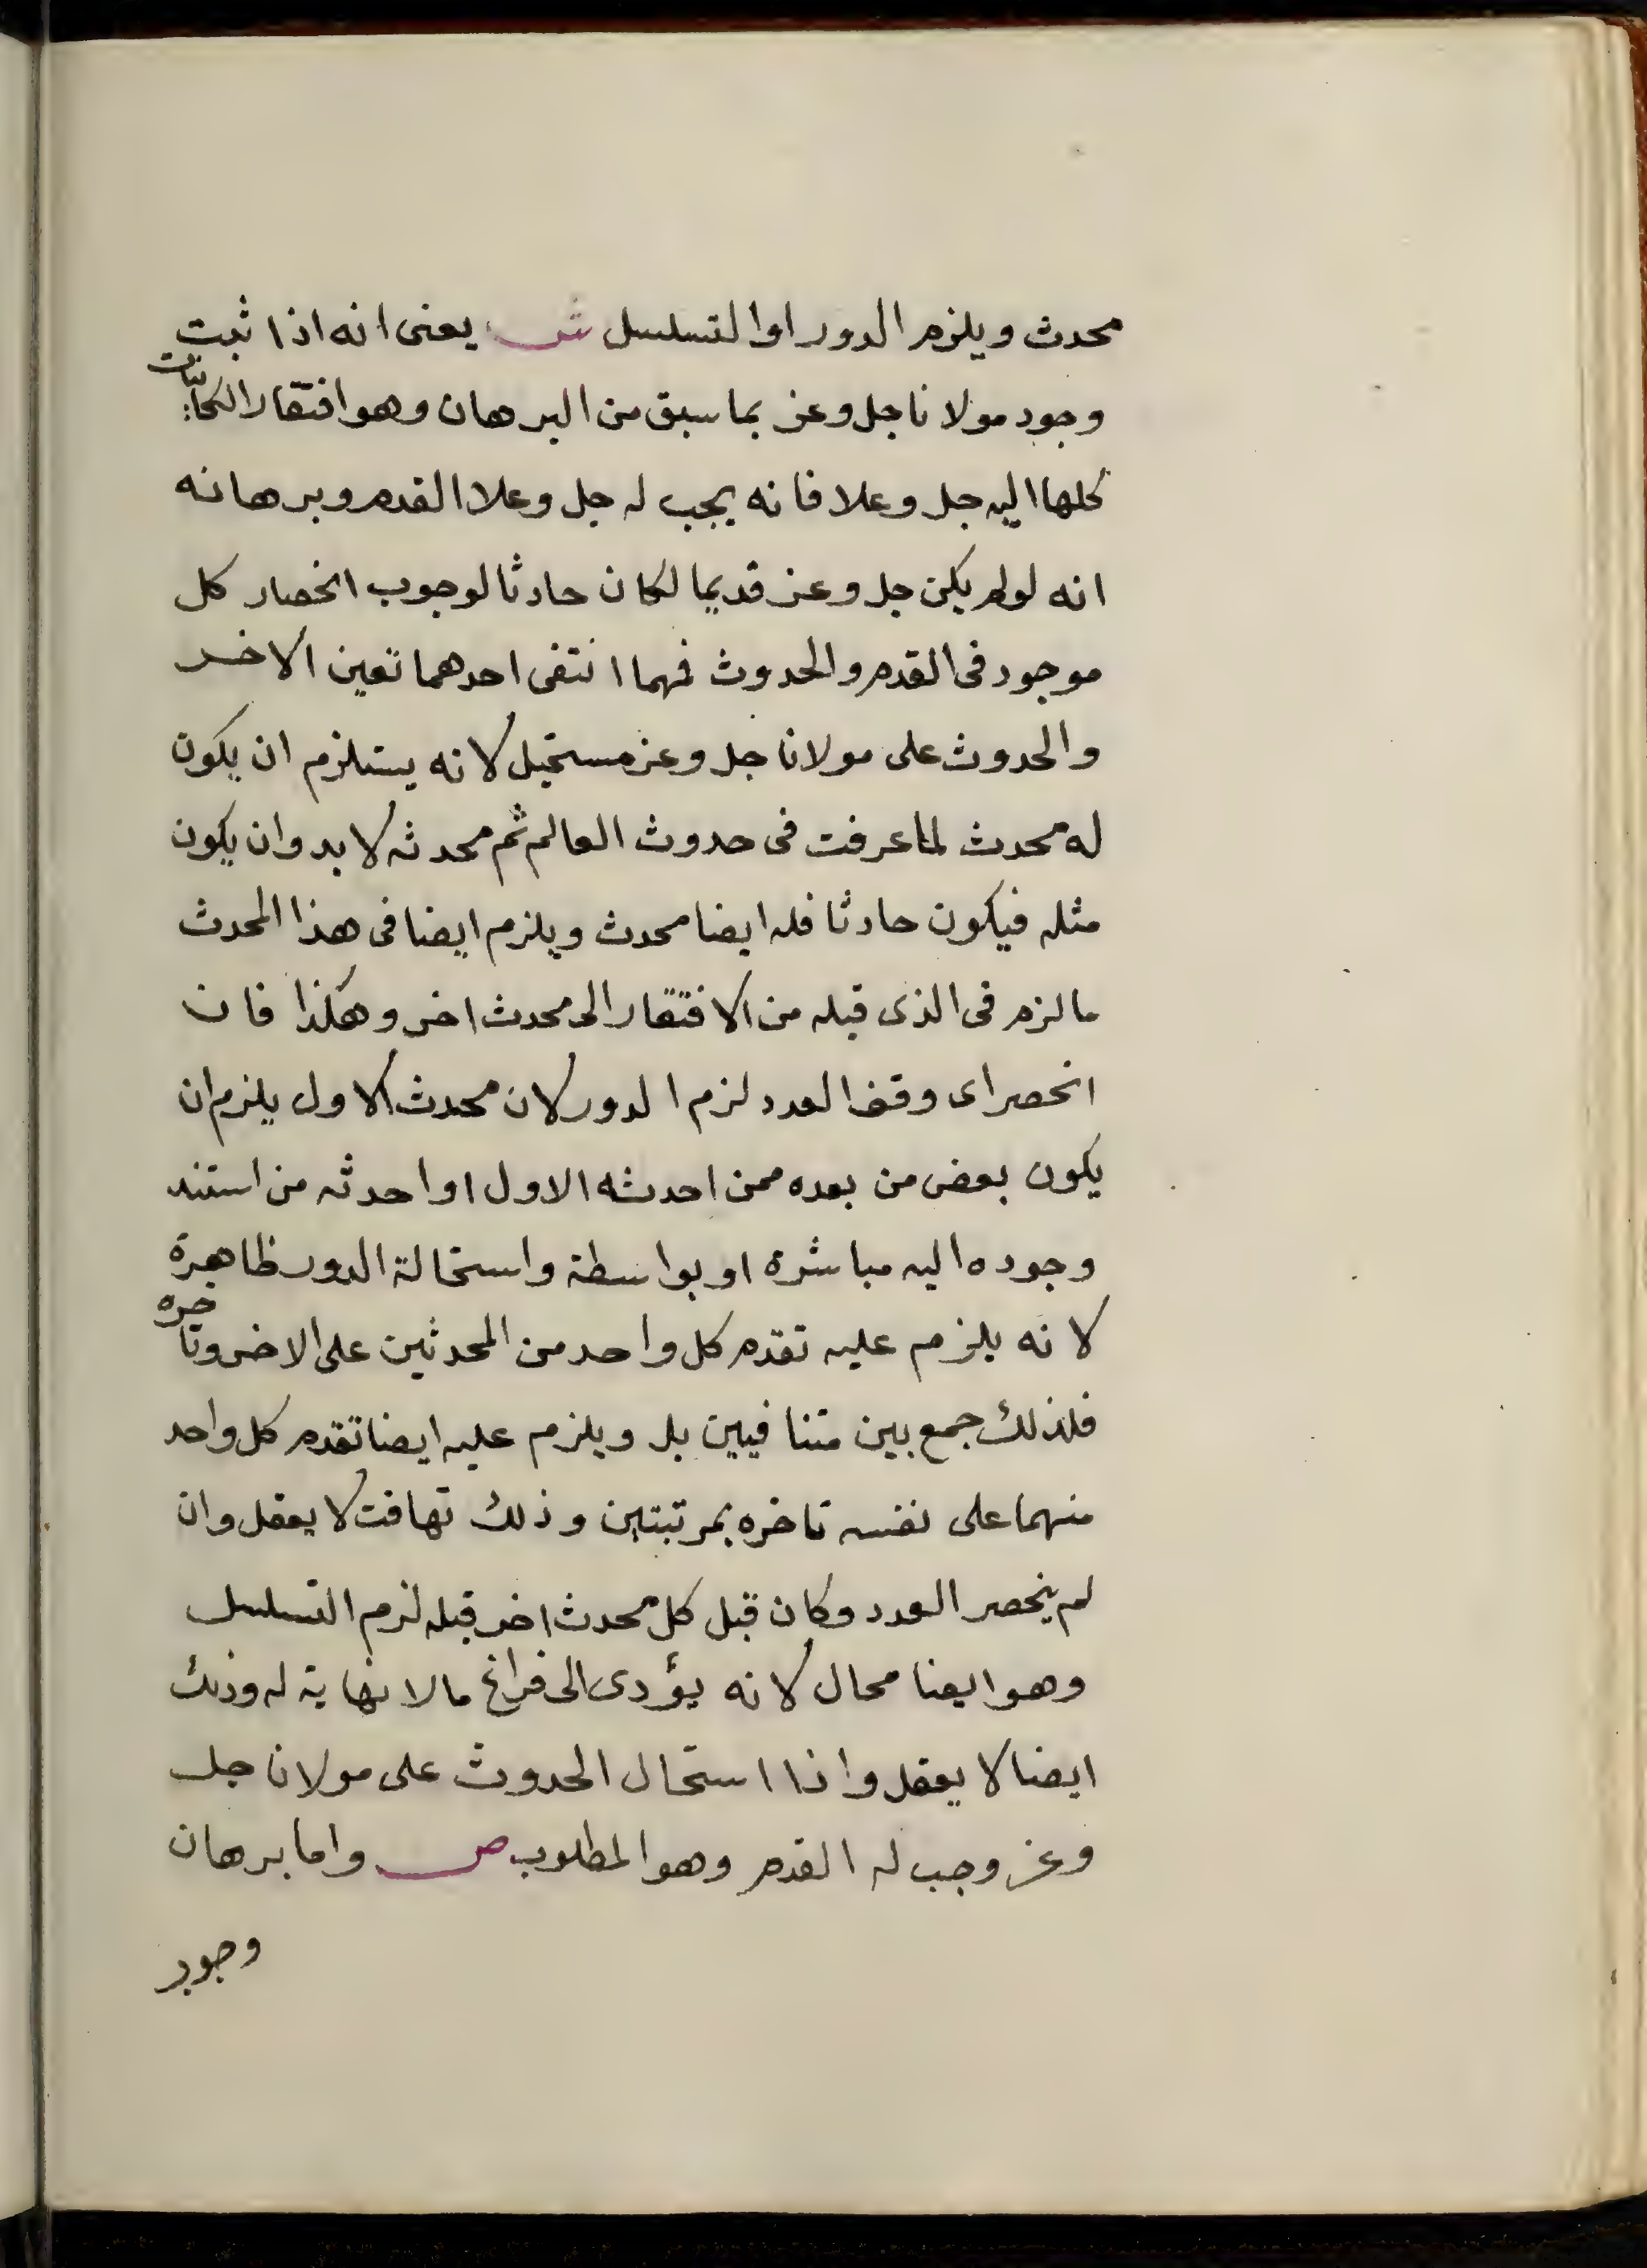 محدث ويلزم الدور اوالتسلسل ش يعنى انه اذا ثبت
وجود مولانا جل وعز بما سبق من البرهان وهو افتقار الكائنات
كلها اليه جل وعلا فانه يجب له جل وعلا القدم وبرهانه
انه لولم يكن جل وعز قديما لكان حادثا لوجوب انحصار كل
موجود فى القدم والحدوث فمهما انتفى احدهما تعين الاخر
والحدوث على مولانا جل وعز مستحيل لانه يستلزم ان يكون
له محدث لما عرفت فى حدوث العالم ثم محدثه لا بد وان يكون
مثله فيكون حادثا فله ايضا محدث ويلزم ايضا فى هذا المحدث
ما لزم فى الذى قبله من الافتقار الى محدث اخر وهكذا فان
انحصر اى وقف العدد لزم الدور لان محدث الاول يلزم ان
يكون بعض من بعده ممن احدثه الاول او احدثه من استند
وجوده اليه مباشرة او بواسطة واستحالة الدور ظاهرة
لانه يلزم عليه تقدم كل واحد من المحدثين على الاخر وتاخره
فلذلك جمع بين متنافيين بل ويلزم عليه ايضا تقدم كل واحد
منهما على نفسه تاخره بمرتبتين وذلك تهافت لا يعقل وان
لم ينحصر العدد وكان قبل كل محدث اخر قبله لزم التسلسل
وهو ايضا محال لانه يؤدى الى فراغ مالا نهاية له وذلك
ايضا لا يعقل واذا استحال الحدوث على مولانا جل
وعز وجب له القدم وهو المطلوب ص واما برهان
وجوب